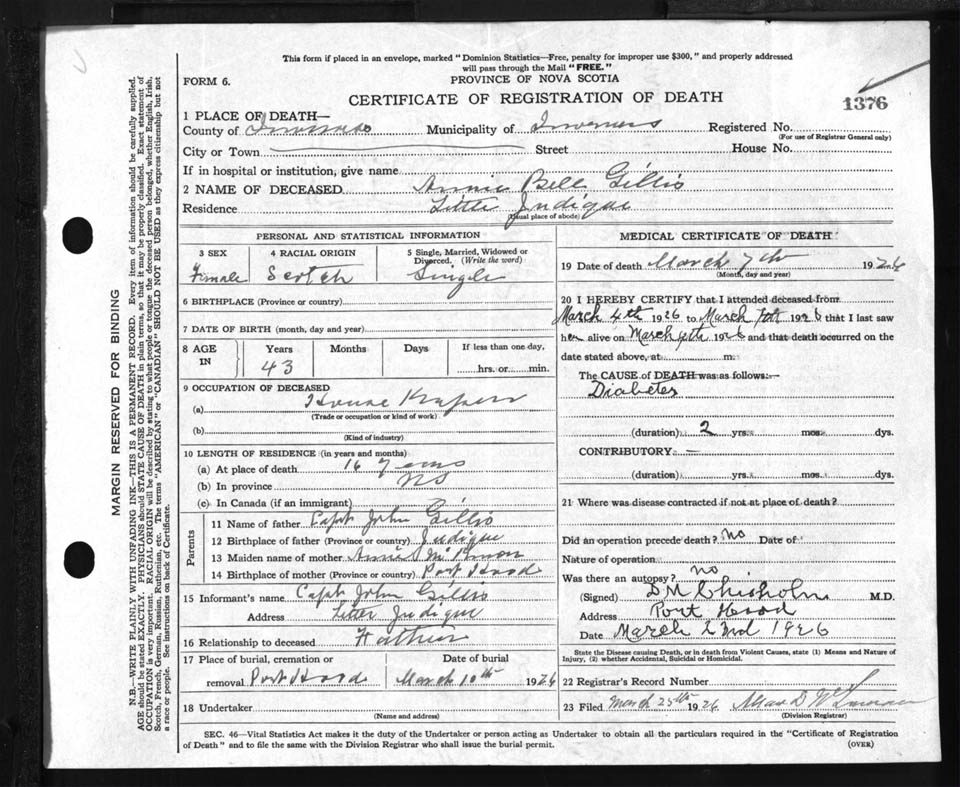 This form if placed in an envelope, marked "Dominion Statistics—Free, penalty for improper use $300," and properly addressed
will pass through the Mail "FREE."
FORM 6.
PROVINCE OF NOVA SCOTIA
CERTIFICATE OF REGISTRATION OF DEATH
1376
1 PLACE OF DEATH—
County of Inverness Municipality of Inverness Registered No.
(For use of Registrar General only)
City or Town Street House No.
If in hospital or institution, give name
2 NAME OF DECEASED Annie Bell Gillis
Residence Little Judique
(Usual place of abode)
PERSONAL AND STATISTICAL INFORMATION
3 SEX 4 RACIAL ORIGIN 5 Single, Married, Widowed or Divorced. (Write the word)
Female Scotch Single
6 BIRTHPLACE (Province or country)
7 DATE OF BIRTH (month, day and year)
8 AGE IN Years Months Days If less than one day,
43 hrs. or min.
9 OCCUPATION OF DECEASED
(a) House Keeper
(Trade or occupation or kind of work)
(b)
(Kind of industry)
10 LENGTH OF RESIDENCE (in years and months)
(a) At place of death 16 years
(b) In province NS
(c) In Canada (if an immigrant)
Parents
11 Name of father Capt John Gillis
12 Birthplace of father (Province or country) Judique
13 Maiden name of mother Annie
14 Birthplace of mother (Province or country) Port Hood
15 Informant's name Capt John Gillis
Address Little Judique
16 Relationship to deceased Father
17 Place of burial, cremation or removal Port Hood Date of burial March 10th 1926
18 Undertaker
(Name and address)
MEDICAL CERTIFICATE OF DEATH
19 Date of death March 7th 1926
(Month, day and year)
20 I HEREBY CERTIFY that I attended deceased from
March 4th 1926 to March 7th 1926 that I last saw
her alive on March 4th 1926 and that death occurred on the
date stated above, at m.
The CAUSE of DEATH was as follows:—
Diabetes
(duration) 2 yrs. mos. dys.
CONTRIBUTORY —
(duration) yrs. mos. dys.
21 Where was disease contracted if not at place of death?
Did an operation precede death? No Date of
Nature of operation
Was there an autopsy? no
(Signed) D M Chisholm M.D.
Address Port Hood
Date March 23rd 1926
State the Disease causing Death, or in death from Violent Causes, state (1) Means and Nature of
Injury, (2) whether Accidental, Suicidal or Homicidal.
22 Registrar's Record Number
23 Filed March 25th 1926
(Division Registrar)
SEC. 46—Vital Statistics Act makes it the duty of the Undertaker or person acting as Undertaker to obtain all the particulars required in the "Certificate of Registration
of Death" and to file the same with the Division Registrar who shall issue the burial permit.
(OVER)
MARGIN RESERVED FOR BINDING
N.B.—WRITE PLAINLY WITH UNFADING INK—THIS IS A PERMANENT RECORD. Every item of information should be carefully supplied.
AGE should be stated EXACTLY. PHYSICIANS should STATE CAUSE OF DEATH in plain terms, so that it may be properly classified. Exact statement of
OCCUPATION is very important. RACIAL ORIGIN will be described by stating to what people or tongue the deceased person belonged, whether English, Irish,
Scotch, French, German, Russian, Ruthenian, etc. The terms "AMERICAN" or "CANADIAN" SHOULD NOT BE USED as they express citizenship but not
a race or people. See instructions on back of Certificate.